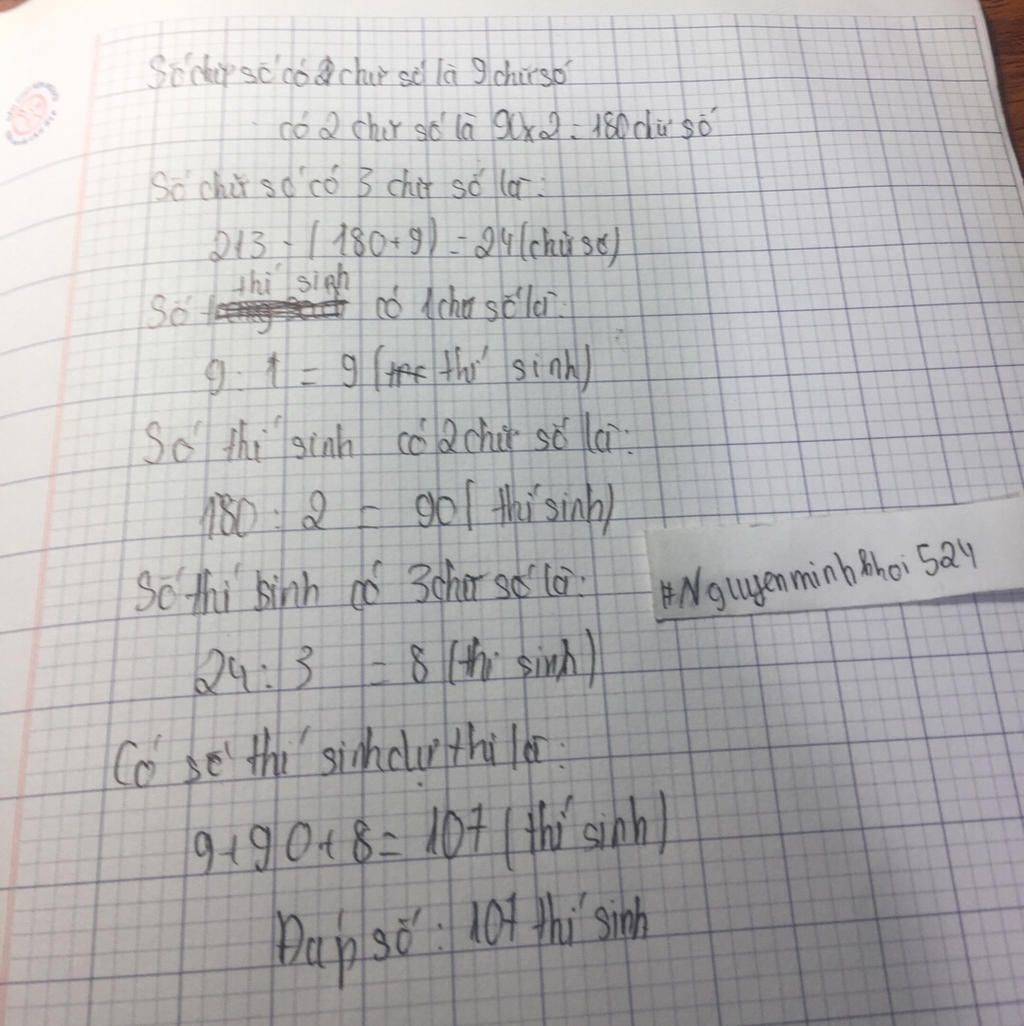 Số chữ số có 1 chữ số là 9 chữ số
có 2 chữ số là 90x2=180 chữ số
Số chữ số có 3 chữ số là:
213-(180+9)=24(chữ số)
Số thí sinh có 1 chữ số là:
9:1=9(thí sinh)
Số thí sinh có 2 chữ số là:
180:2=90(thí sinh)
Số thí sinh có 3 chữ số là:
#Nguyenminhkhoi524
24:3=8(thí sinh)
Có số thí sinh dự thi là:
9+90+8=107(thí sinh)
Đáp số: 107 thí sinh